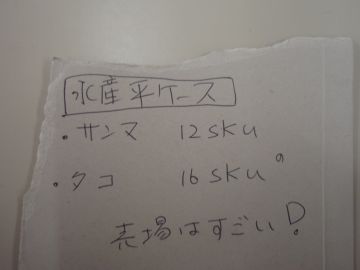 水産平ケース
・サンマ 12sku
・タコ 16skuの
売場はすごい!